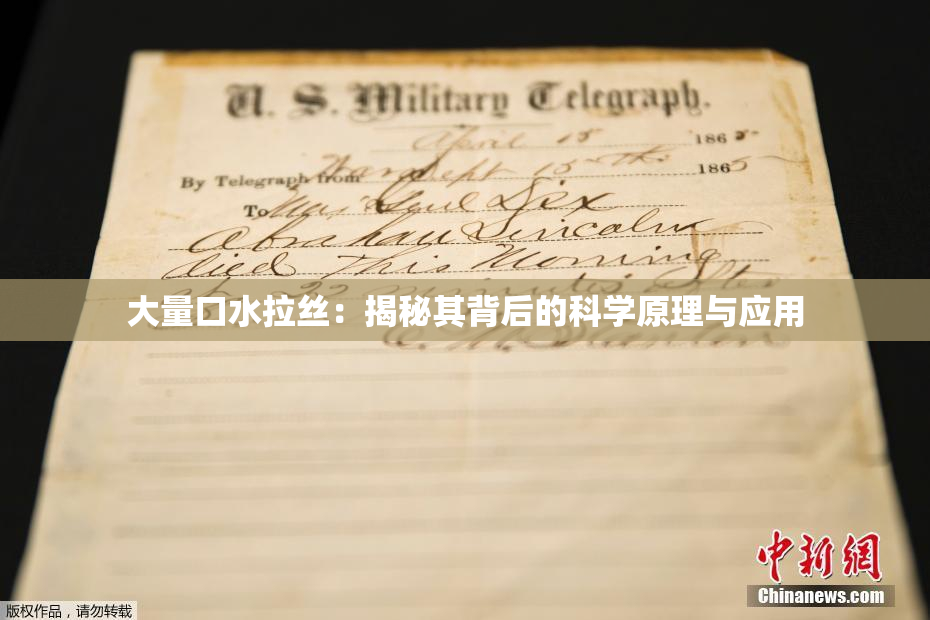 U. S. Military Telegraph.
April 15 1865
By Telegraph from War Dept 15th 1865
To Maj Genl Dix
Abraham Lincoln
died This Morning
at 22 minutes after
大量口水拉丝：揭秘其背后的科学原理与应用
中新網
Chinanews.com
版权作品，请勿转载